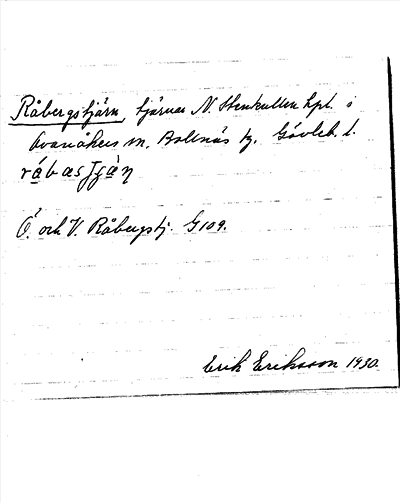 Råbergstjärn, tjärnar N. Stenkullen hpl. i
Ovanåkers sn, Bollnäs tg, Gävleb. l.
Ö. och V. Råbergstj. G 109.
Erik Eriksson 1930.